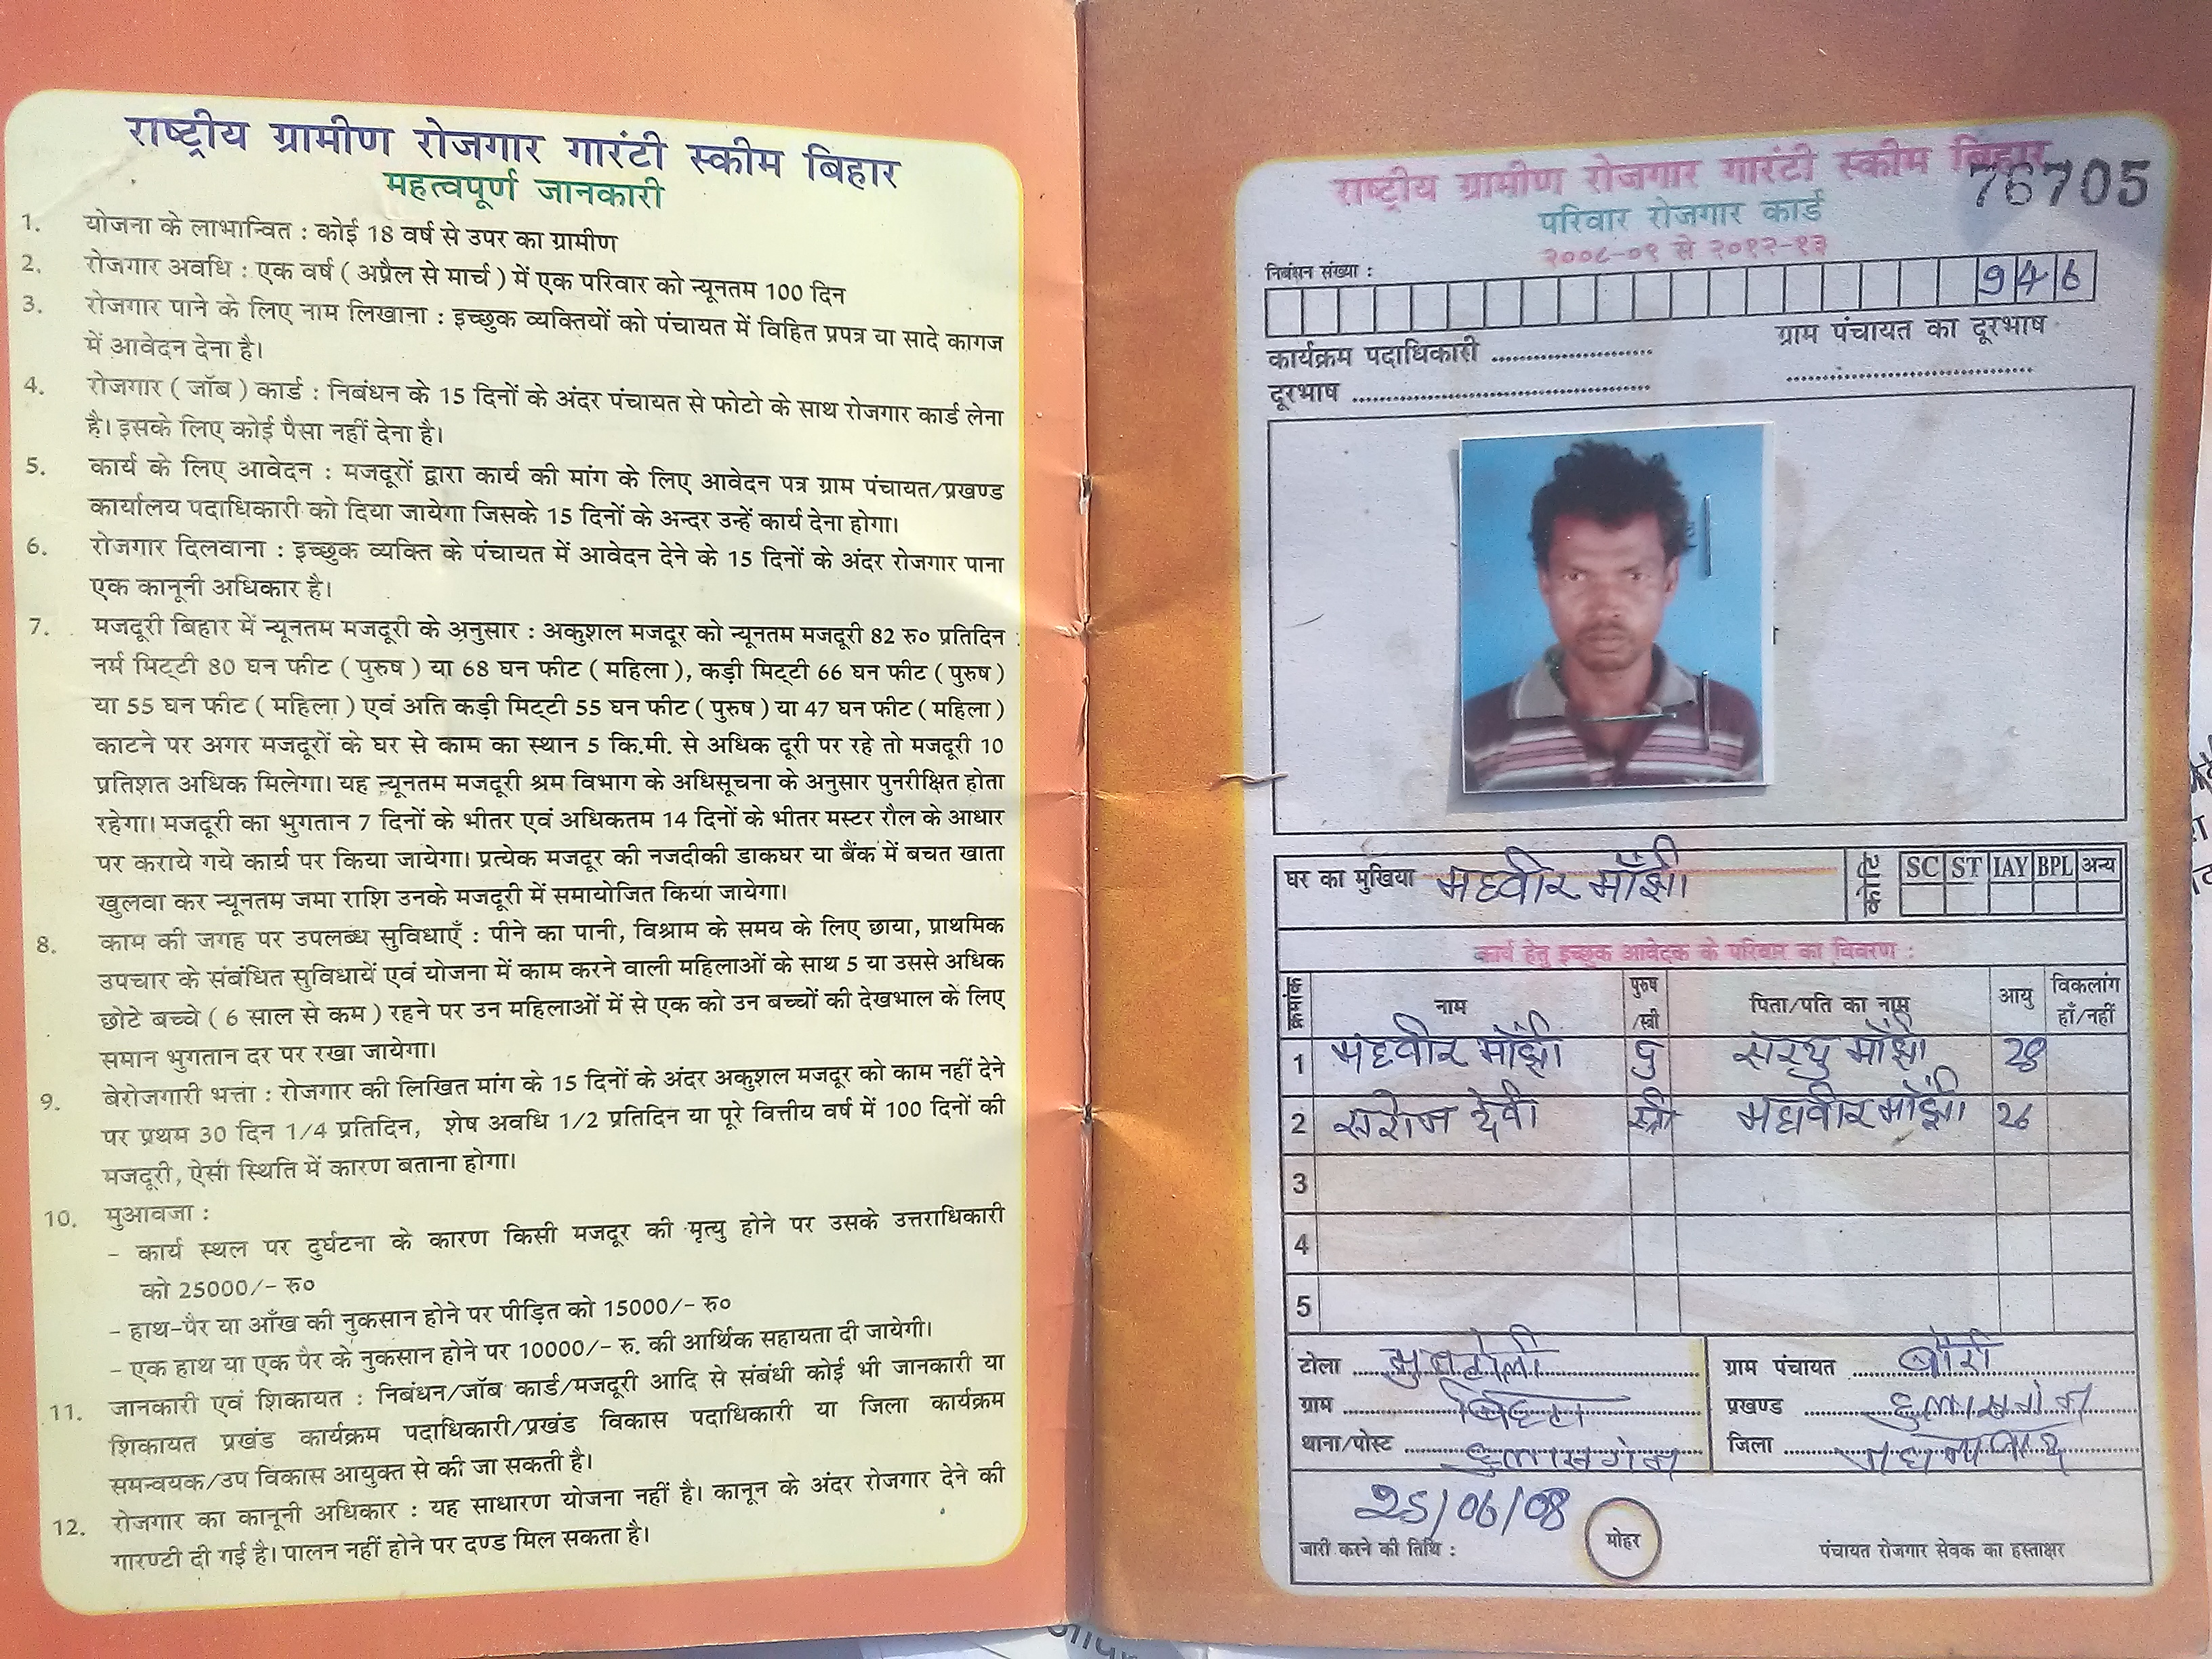 राष्ट्रीय ग्रामीण रोजगार गारंटी स्कीम बिहार
महत्वपूर्ण जानकारी
1. योजना के लाभान्वित : कोई 18 वर्ष से उपर का ग्रामीण
2. रोजगार अवधि : एक वर्ष ( अप्रैल से मार्च ) में एक परिवार को न्यूनतम 100 दिन
3. रोजगार पाने के लिए नाम लिखाना : इच्छुक व्यक्तियों को पंचायत में विहित प्रपत्र या सादे कागज
में आवेदन देना है।
4. रोजगार ( जॉब ) कार्ड : निबंधन के 15 दिनों के अंदर पंचायत से फोटो के साथ रोजगार कार्ड लेना
है। इसके लिए कोई पैसा नहीं देना है।
5. कार्य के लिए आवेदन : मजदूरों द्वारा कार्य की मांग के लिए आवेदन पत्र ग्राम पंचायत/प्रखण्ड
कार्यालय पदाधिकारी को दिया जायेगा जिसके 15 दिनों के अन्दर उन्हें कार्य देना होगा।
6. रोजगार दिलवाना : इच्छुक व्यक्ति के पंचायत में आवेदन देने के 15 दिनों के अंदर रोजगार पाना
एक कानूनी अधिकार है।
7. मजदूरी बिहार में न्यूनतम मजदूरी के अनुसार : अकुशल मजदूर को न्यूनतम मजदूरी 82 रु० प्रतिदिन :
नर्म मिट्टी 80 घन फीट ( पुरुष ) या 68 घन फीट ( महिला ), कड़ी मिट्टी 66 घन फीट ( पुरुष )
या 55 घन फीट ( महिला ) एवं अति कड़ी मिट्टी 55 घन फीट ( पुरुष ) या 47 घन फीट ( महिला )
काटने पर अगर मजदूरों के घर से काम का स्थान 5 कि.मी. से अधिक दूरी पर रहे तो मजदूरी 10
प्रतिशत अधिक मिलेगा। यह न्यूनतम मजदूरी श्रम विभाग के अधिसूचना के अनुसार पुनरीक्षित होता
रहेगा। मजदूरी का भुगतान 7 दिनों के भीतर एवं अधिकतम 14 दिनों के भीतर मस्टर रौल के आधार
पर कराये गये कार्य पर किया जायेगा। प्रत्येक मजदूर की नजदीकी डाकघर या बैंक में बचत खाता
खुलवा कर न्यूनतम जमा राशि उनके मजदूरी में समायोजित किया जायेगा।
8. काम की जगह पर उपलब्ध सुविधाएँ : पीने का पानी, विश्राम के समय के लिए छाया, प्राथमिक
उपचार के संबंधित सुविधायें एवं योजना में काम करने वाली महिलाओं के साथ 5 या उससे अधिक
छोटे बच्चे ( 6 साल से कम ) रहने पर उन महिलाओं में से एक को उन बच्चों की देखभाल के लिए
समान भुगतान दर पर रखा जायेगा।
9. बेरोजगारी भत्ता : रोजगार की लिखित मांग के 15 दिनों के अंदर अकुशल मजदूर को काम नहीं देने
पर प्रथम 30 दिन 1/4 प्रतिदिन, शेष अवधि 1/2 प्रतिदिन या पूरे वित्तीय वर्ष में 100 दिनों की
मजदूरी, ऐसी स्थिति में कारण बताना होगा।
10. मुआवजा :
- कार्य स्थल पर दुर्घटना के कारण किसी मजदूर की मृत्यु होने पर उसके उत्तराधिकारी
को 25000/- रु०
- हाथ-पैर या आँख की नुकसान होने पर पीड़ित को 15000/- रु०
- एक हाथ या एक पैर के नुकसान होने पर 10000/- रु. की आर्थिक सहायता दी जायेगी।
11. जानकारी एवं शिकायत : निबंधन/जॉब कार्ड/मजदूरी आदि से संबंधी कोई भी जानकारी या
शिकायत प्रखंड कार्यक्रम पदाधिकारी/प्रखंड विकास पदाधिकारी या जिला कार्यक्रम
समन्वयक/उप विकास आयुक्त से की जा सकती है।
12. रोजगार का कानूनी अधिकार : यह साधारण योजना नहीं है। कानून के अंदर रोजगार देने की
गारण्टी दी गई है। पालन नहीं होने पर दण्ड मिल सकता है।
राष्ट्रीय ग्रामीण रोजगार गारंटी स्कीम बिहार
76705
परिवार रोजगार कार्ड
२००८-०९ से २०१२-१३
निबंधन संख्या :
946
कार्यक्रम पदाधिकारी
ग्राम पंचायत का दूरभाष
दूरभाष
घर का मुखिया महवीर माँझी
कोटि SC ST IAY BPL अन्य
कार्य हेतु इच्छुक आवेदक के परिवार का विवरण :
क्रमांक नाम पुरुष/स्त्री पिता/पति का नाम आयु विकलांग हाँ/नहीं
1 महवीर माँझी पु सरयु माँझी 28
2 सरोज देवी स्त्री महावीर माँझी 26
3
4
5
टोला
ग्राम पंचायत
ग्राम
प्रखण्ड
थाना/पोस्ट हुलासगंज
जिला
25/06/08
जारी करने की तिथि :
मोहर
पंचायत रोजगार सेवक का हस्ताक्षर